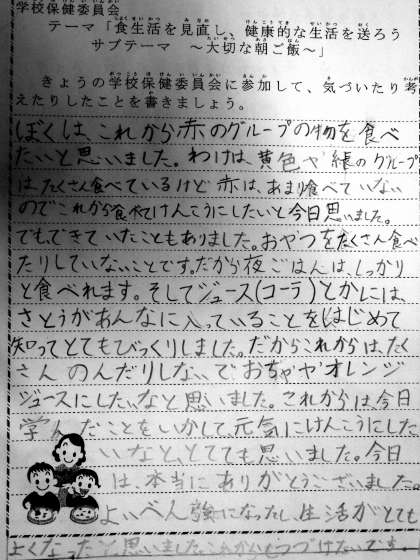 学校保健委員会
テーマ「食生活を見直し、健康的な生活を送ろう
サブテーマ　～大切な朝ご飯～」
きょうの学校保健委員会に参加して、気づいたり考
えたりしたことを書きましょう。
ぼくは、これから赤のグループの物を食べ
たいと思いました。わけは、黄色や緑のグループ
は、たくさん食べているけど赤は、あまり食べていない
のでこれから食べてけんこうにしたいと今日思いました。
でもできていたこともありました。おやつをたくさん食べ
たりしていないことです。だから夜ごはんは、しっかり
と食べれます。そしてジュース(コーラ)とかには、
さとうがあんなに入っていることをはじめて
知ってとてもびっくりしました。だからこれからは、たく
さんのんだりしないでおちゃやオレンジ
ジュースにしたいなと思いました。これからは、今日
学んだことをいかして、元気にけんこうにした
いなと、とても思いました。今日
は、本当にありがとうございました。
よいべん強になったし、生活がとても
よくなったと思いました。